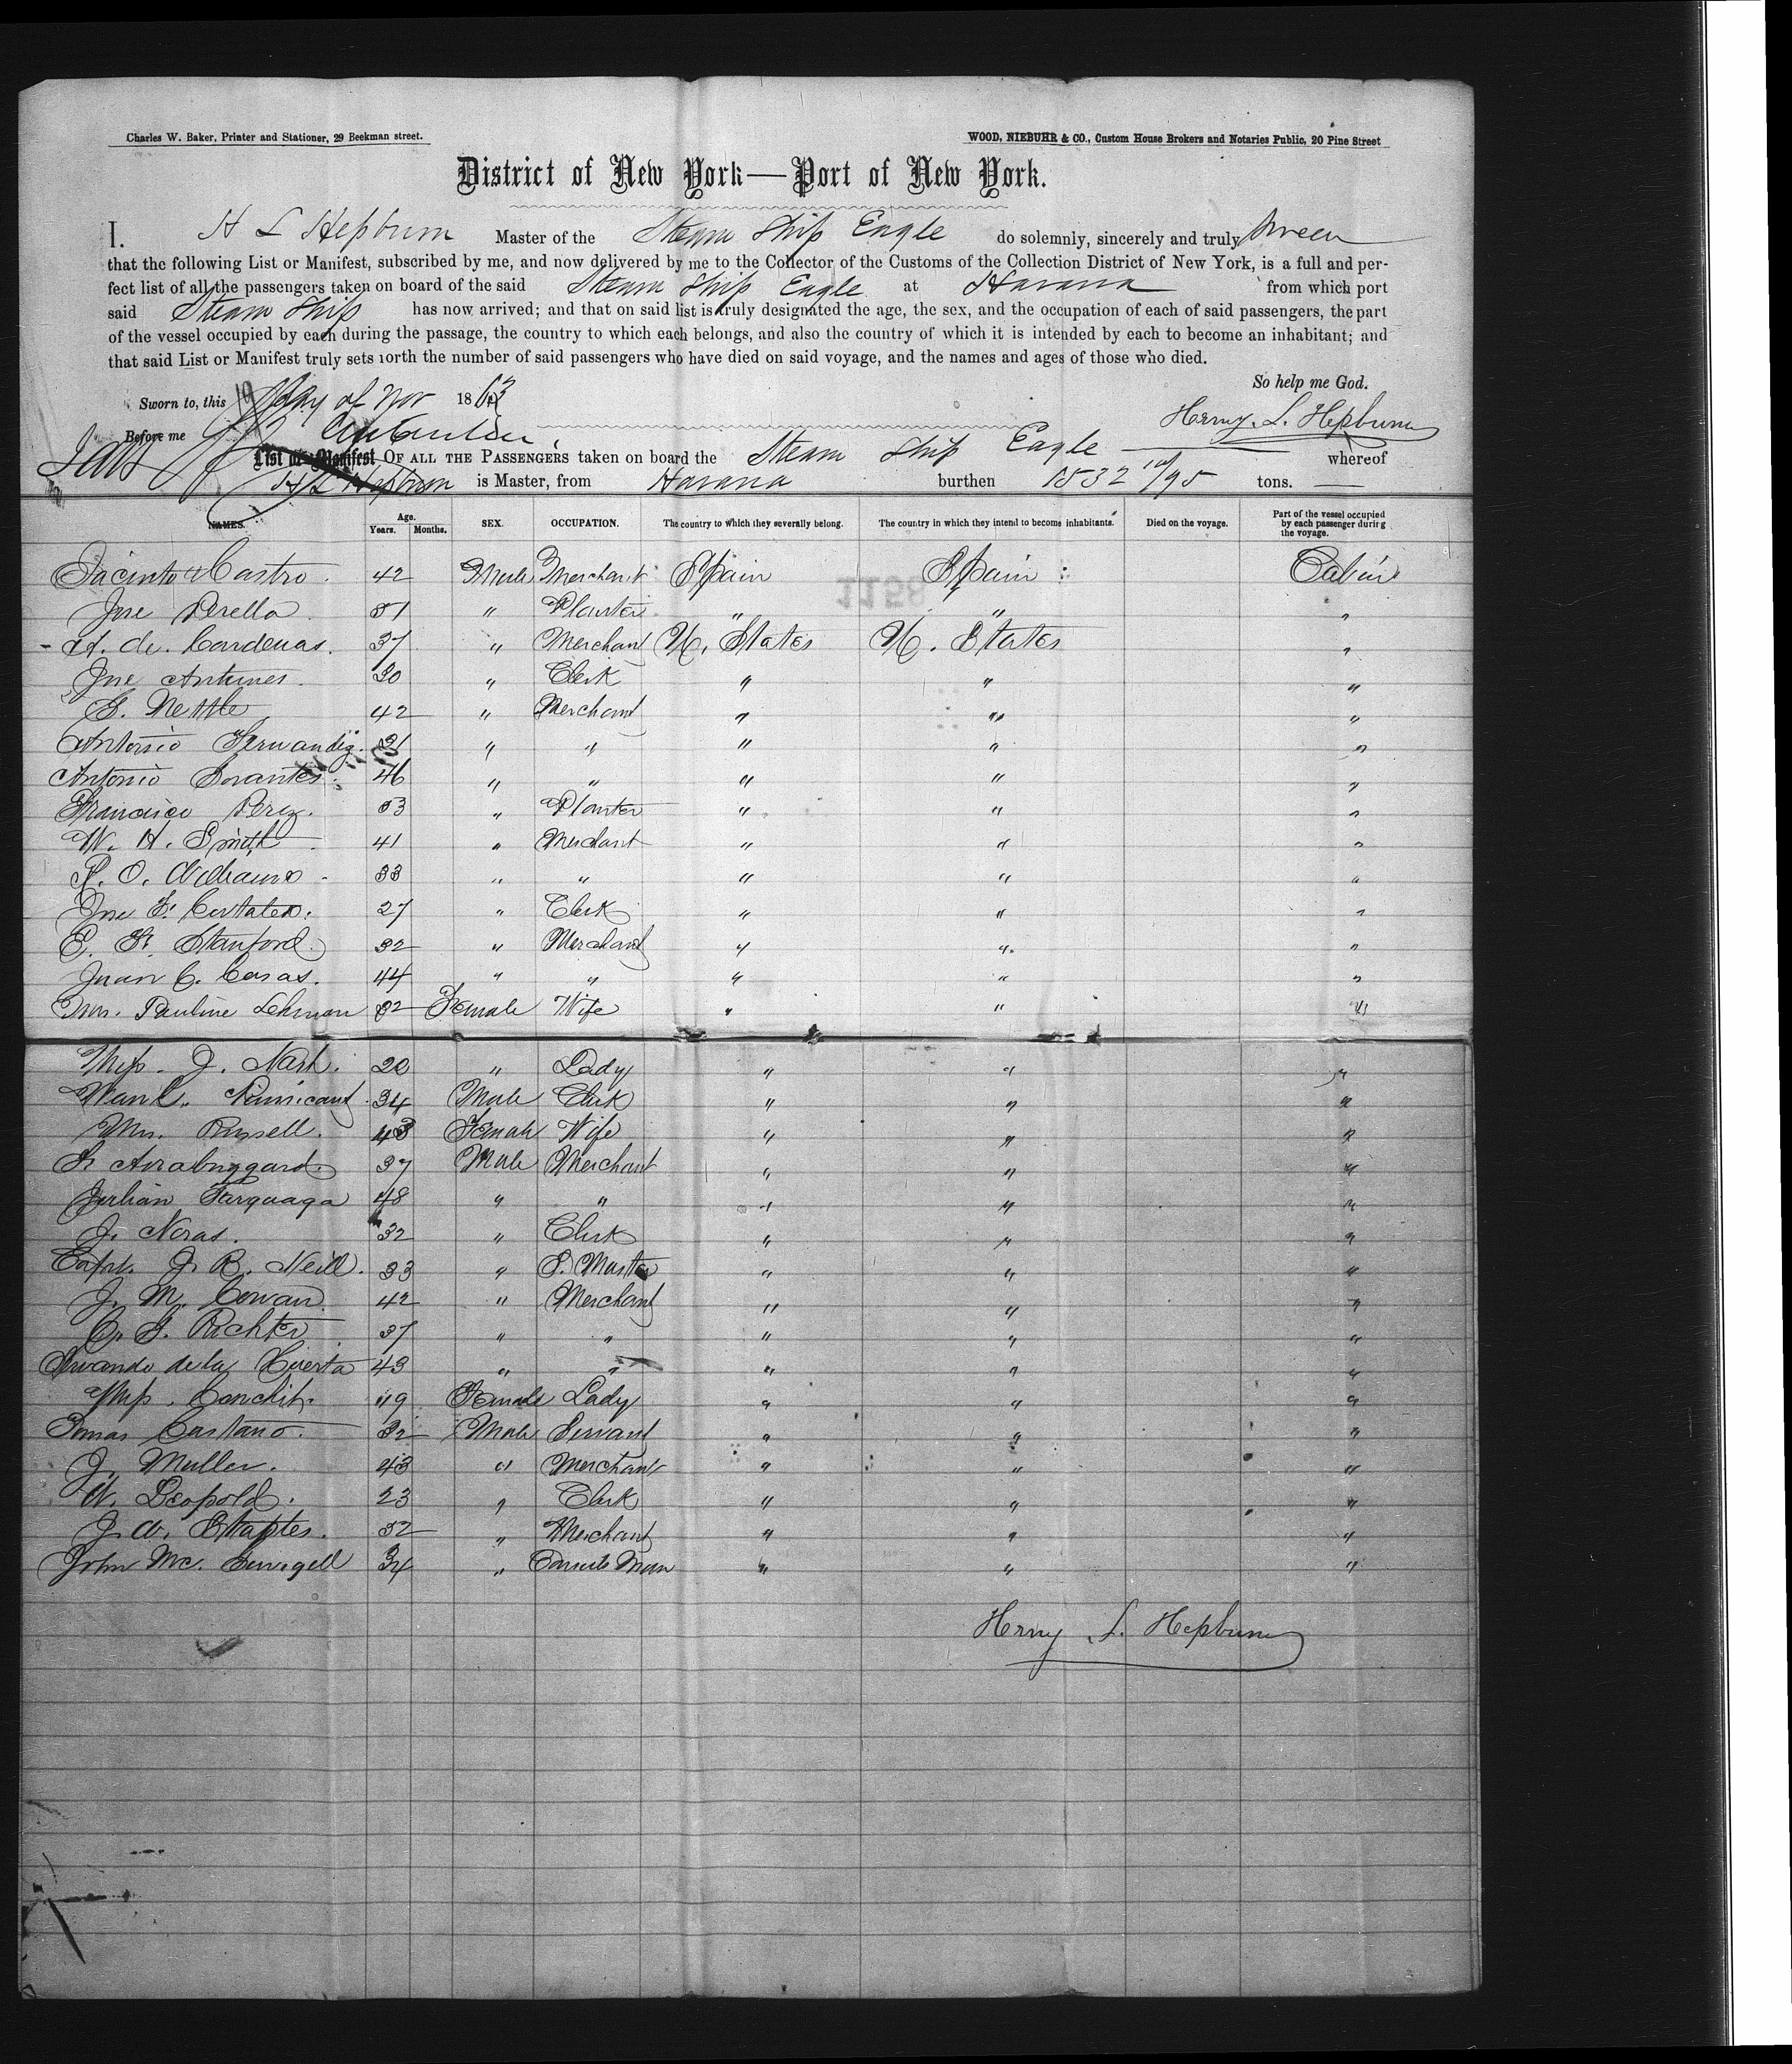 Charles W. Baker, Printer and Stationer, 29 Beekman street.
WOOD, NIEBUHR & CO., Custom House Brokers and Notaries Public, 20 Pine Street
District of New York—Port of New York.
I. H L Hepburn Master of the Steam Ship Eagle do solemnly, sincerely and truly swear
that the following List or Manifest, subscribed by me, and now delivered by me to the Collector of the Customs of the Collection District of New York, is a full and per-
fect list of all the passengers taken on board of the said Steam Ship Eagle at Havana from which port
said Steam Ship has now arrived; and that on said list is truly designated the age, the sex, and the occupation of each of said passengers, the part
of the vessel occupied by each during the passage, the country to which each belongs, and also the country of which it is intended by each to become an inhabitant; and
that said List or Manifest truly sets forth the number of said passengers who have died on said voyage, and the names and ages of those who died.
So help me God.
Sworn to, this day of Nov 1863
Henry. L. Hepburn
Before me
List or Manifest OF ALL THE PASSENGERS taken on board the Steam Ship Eagle whereof
H L Hepburn is Master, from Havana burthen 1532 /95 tons.
NAMES. Age. Years. Months. SEX. OCCUPATION. The country to which they severally belong. The country in which they intend to become inhabitants. Died on the voyage. Part of the vessel occupied by each passenger during the voyage.
Jacinto Castro. 42 Male Merchant Spain Spain Cabin
Jose Perella 51 " Planter " " "
- A. de. Cardenas. 37 " Merchant U. States U. States "
Jose Antunes. 30 " Clerk " " "
G. Nestle 42 " Merchant " " "
Antonio Fernandez. 31 " " " " "
Antonio Sorantes. 46 " " " " "
Francisco Perez. 53 " Planter " " "
W. H. Smith 41 " Merchant " " "
P. O. Williams 33 " " " " "
Jose F. 27 " Clerk " " "
E. F. Stanford. 32 " Merchant " " "
Juan C. Casas. 44 " " " " "
Mrs. Pauline Lehman 32 Female Wife " " "
Miss. J. Nash. 20 " Lady " " "
34 Male Clerk " " "
Mrs. Russell. 43 Female Wife " " "
37 Male Merchant " " "
Julian 48 " " " " "
J. Noras. 32 " Clerk " " "
Capt. J. B. Neill. 33 " S. Master " " "
J. M. Cowan 42 " Merchant " " "
C. G. Richter 37 " " " " "
Servando de la Cuesta 43 " " " " "
Miss. Conchita. 19 Female Lady " " "
Tomas Castano. 32 Male Servant " " "
J. Muller. 43 " Merchant " " "
W. Leopold. 23 " Clerk " " "
J. W. Staples. 32 " Merchant " " "
John Mc. 34 " Man " " "
Henry L. Hepburn